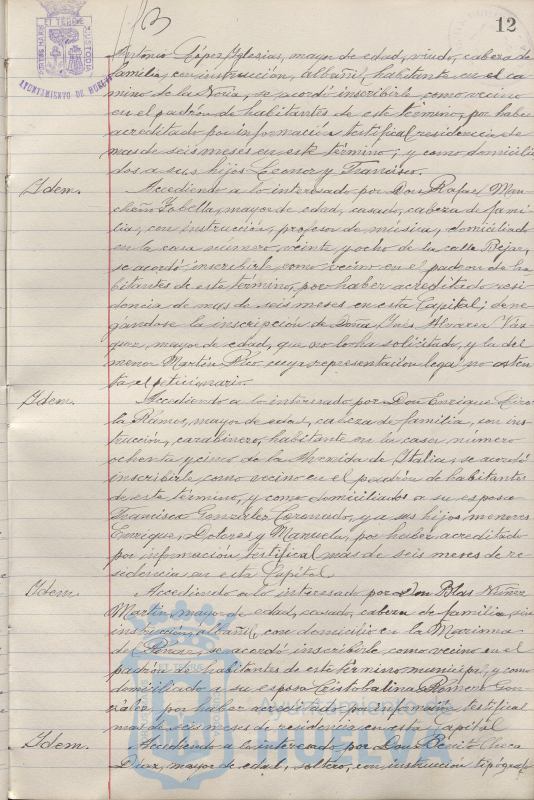 12
EL TERRAE
CUSTODIA
AYUNTAMIENTO DE HUELVA
Antonio López Iglesias, mayor de edad, viudo, cabeza de
familia, con instrucción, albañil, habitante en el ca
mino de la Noria, se acordó inscribirle como vecino
en el padrón de habitantes de este término, por haber
acreditado por información testifical residencia de
mas de seis meses en este término; y como domicilia
dos a sus hijos Leonor y Francisco.
Idem. Accediendo a lo interesado por Don Rafael Man
cheño Isbella, mayor de edad, casado, cabeza de fami
lia, con instrucción, profesor de música, domiciliado
en la casa número veinte y ocho de la calle Bejar,
se acordó inscribirle como vecino en el padron de ha
bitantes de este término, por haber acreditado resi
dencia de mas de seis meses en esta Capital; dene
gándose la inscripción de Doña Inés Alvarez Váz
quez, mayor de edad, que no lo ha solicitado, y la del
menor Martín Rico cuya representación legal no osten
ta el peticionario.
Idem. Accediendo a lo interesado por Don Enrique
la Ramos, mayor de edad, cabeza de familia, con ins
trucción, carabinero, habitante en la casa número
ochenta y cinco de la Avenida de Italia, se acordó
inscribirle como vecino en el padrón de habitantes
de este término, y como domiciliados a su esposa
Francisca González Coronado, y a sus hijos menores
Enrique, Dolores y Manuela, por haber acreditado
por información testifical mas de seis meses de re
sidencia en esta Capital.
Idem. Accediendo a lo interesado por Don Blas Núñez
Martín, mayor de edad, casado, cabeza de familia, sin
instrucción, albañil, con domicilio en la Marisma
de se acordó inscribirle como vecino en el
padrón de habitantes de este término municipal, y como
domiciliado a su esposa Cristobalina Romero Gon
zález por haber acreditado por información testifical
mas de seis meses de residencia en esta Capital
Idem. Accediendo a lo interesado por Don Benito Checa
Díaz, mayor de edad, soltero, con instrucción tipógrafo
HUELVA